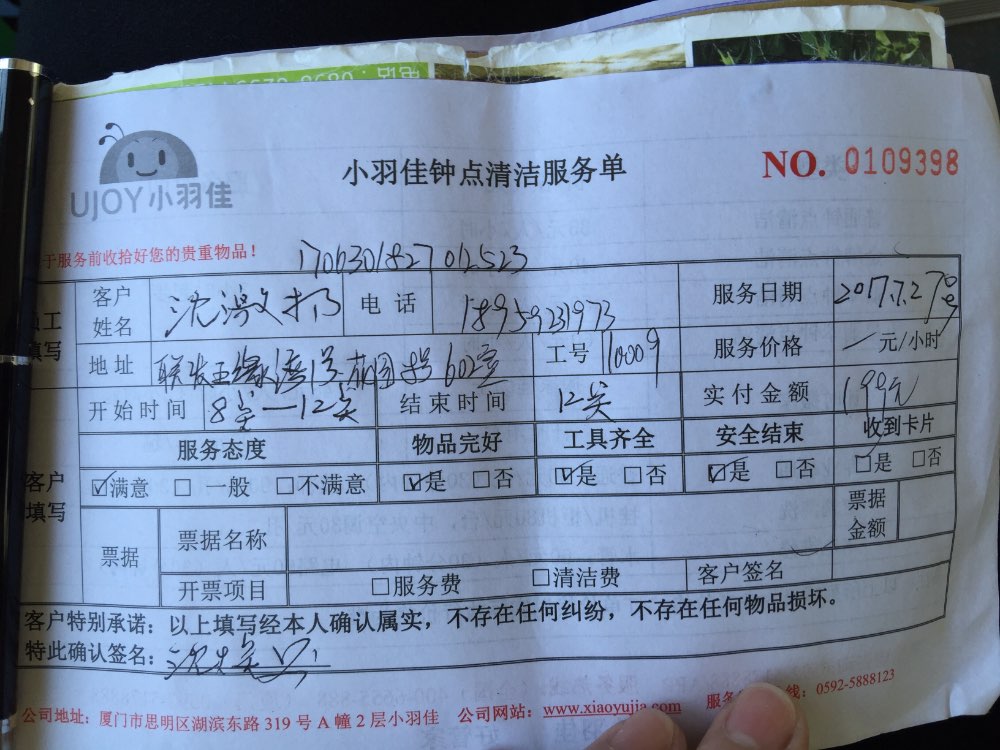 UJOY小羽佳
小羽佳钟点清洁服务单
NO. 0109398
于服务前收拾好您的贵重物品！
1706301827012523
员工填写
客户姓名 电话 18959231973 服务日期 2017.7.27号
地址 602室 工号 110009 服务价格 元/小时
开始时间 结束时间 实付金额 199元
服务态度 物品完好 工具齐全 安全结束 收到卡片
客户填写
☑满意 □一般 □不满意 ☑是 □否 ☑是 □否 ☑是 □否 ☑是 □否
票据 票据名称 票据金额
开票项目 □服务费 □清洁费 客户签名
客户特别承诺：以上填写经本人确认属实，不存在任何纠纷，不存在任何物品损坏。
特此确认签名：
公司地址：厦门市思明区湖滨东路 319 号 A 幢 2 层小羽佳 公司网站：www.xiaoyujia.com 服务 线：0592-5888123